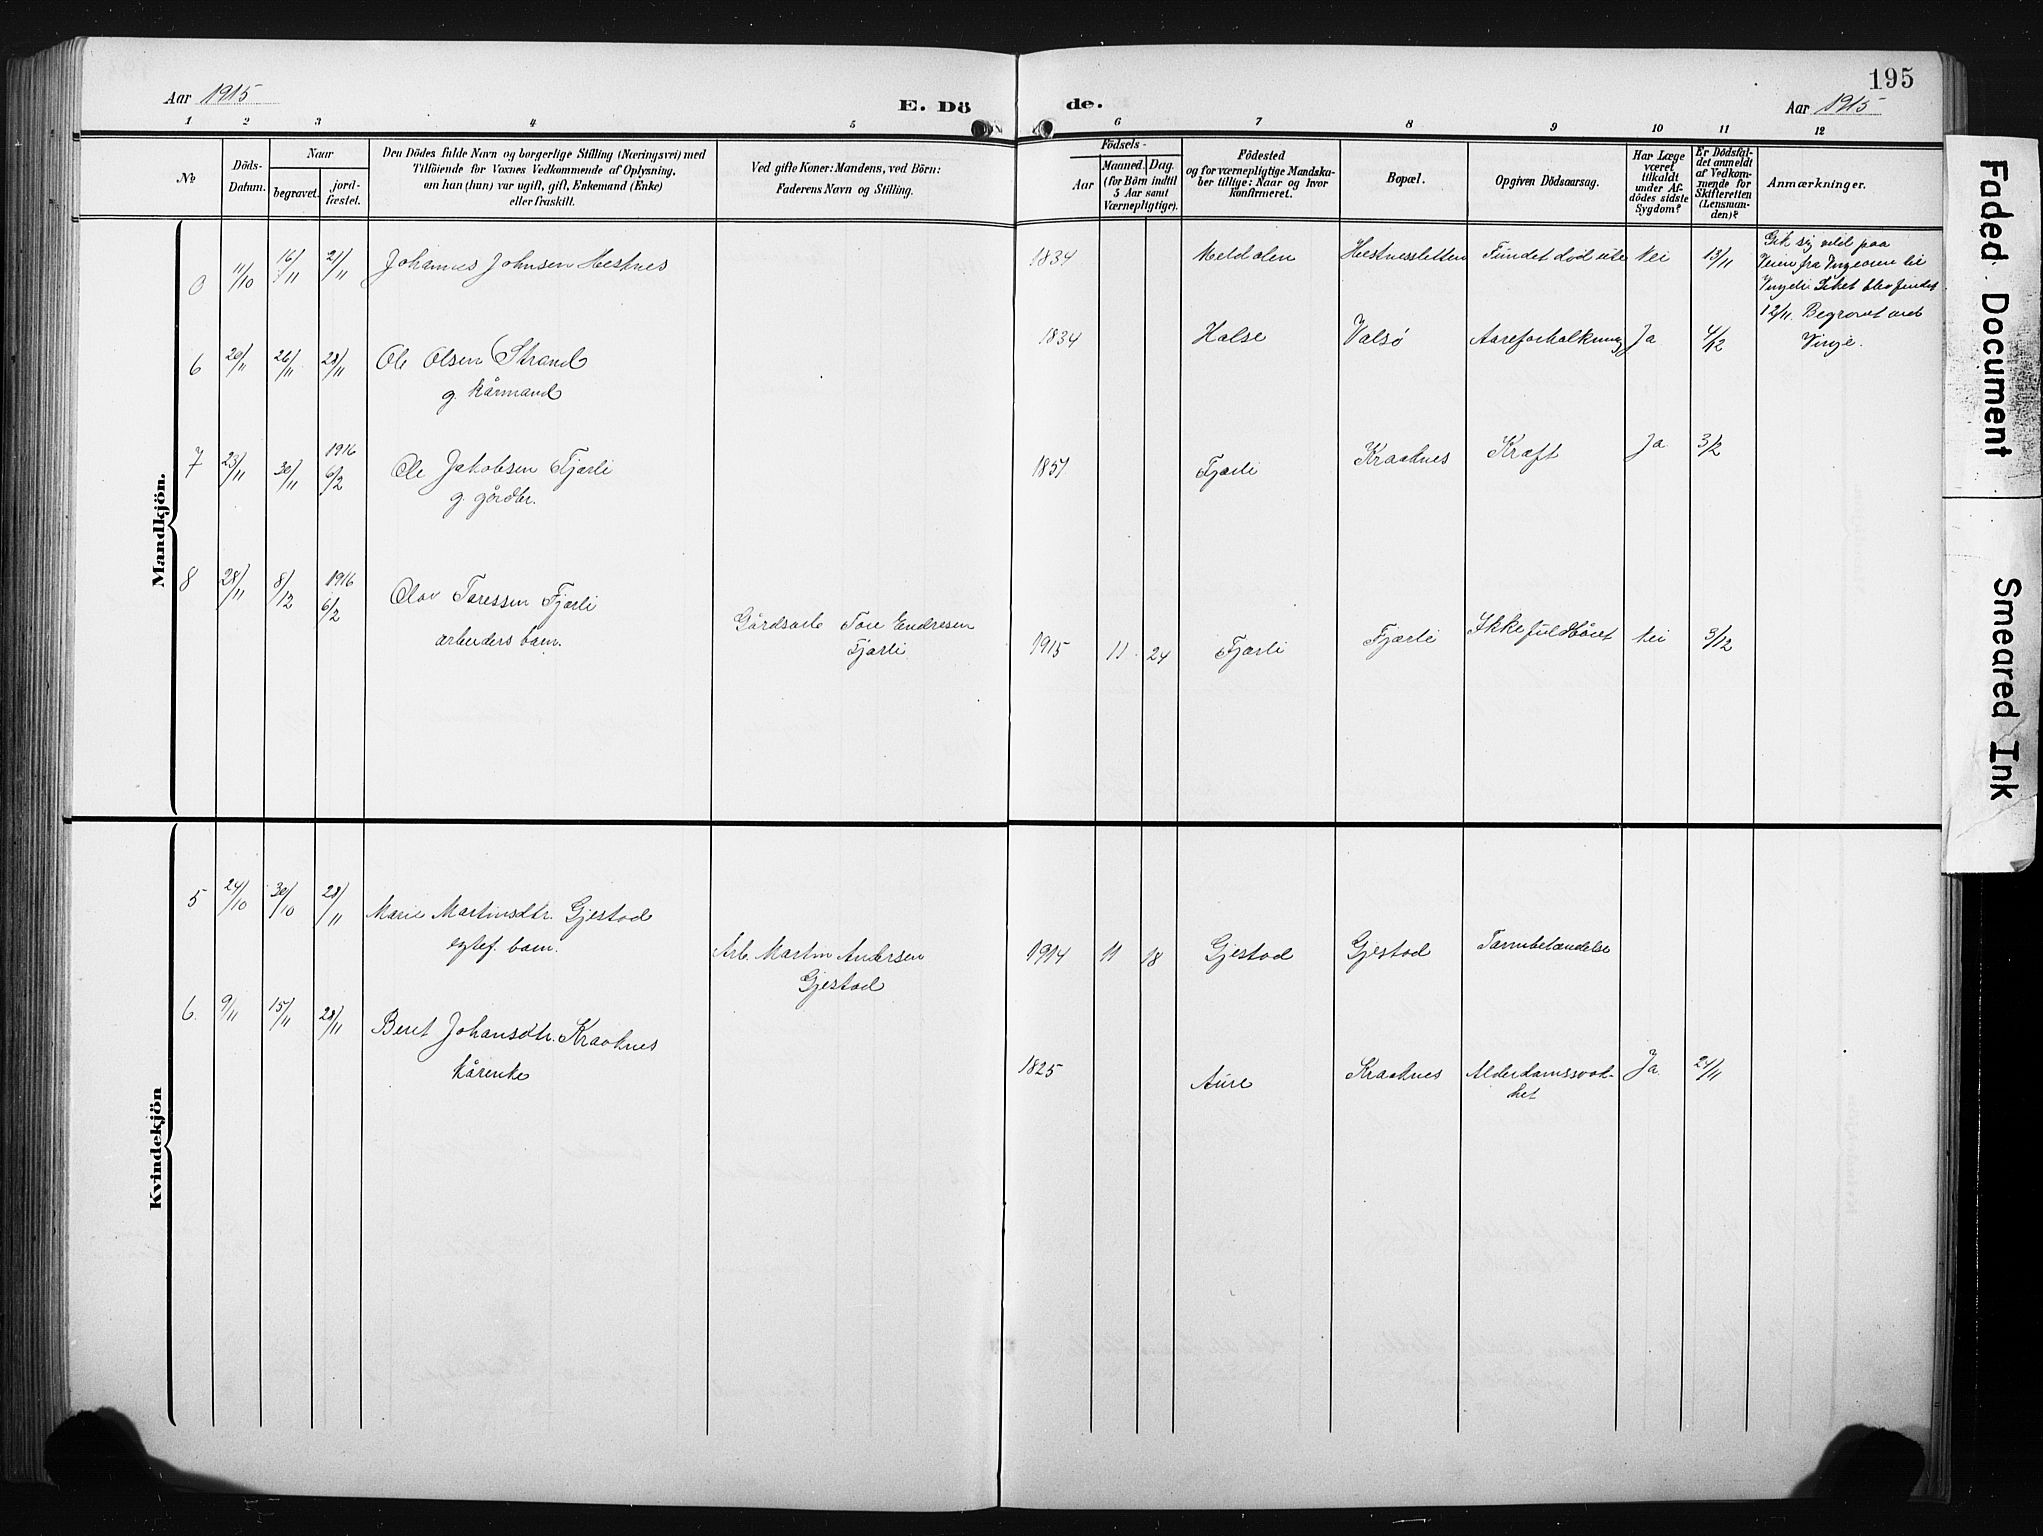 195
Aar 1915
E. Dö
de.
Aar 1915
1 2 3 4 5 6 7 8 9 10 11 12
№
Döds-
Datum.
Naar
begravet.
jord-
fæstet.
Den Dödes fulde Navn og borgerlige Stilling (Næringsvei) med
Tilföiende for Voxnes Vedkommende af Oplysning,
om han (hun) var ugift, gift, Enkemand (Enke)
eller fraskilt.
Ved gifte Koner: Mandens, ved Börn:
Faderens Navn og Stilling.
Födsels-
Aar
Maaned.
Dag.
(for Börn indtil
5 Aar samt
Værnepligtige).
Födested
og for værnepligtige Mandska-
ber tillige: Naar og hvor
konfirmeret.
Bopæl.
Opgiven Dödsaarsag.
Har Læge
været
tilkaldt
under Af-
dödes sidste
Sygdom?
Er Dödsfal-
det anmeldt
af Vedkom-
mende for
Skifteretten
(Lensman-
den)?
Anmærkninger.
Mandkjön.
11/10 16/11 21/11 Johannes Johnsen Hestnes 1834 Meldalen Hestnessletten Fundet död ute Nei 13/11
Gik sig vild paa
Veien fra Vingeoren til
Vingeli. Liket blev fundet
12/11. Begravet ved
Vinje.
6 20/11 26/11 28/11 Ole Olsen Strand 1834 Halse Valsö Aareforkalkning Ja 4/12
g. kårmand
7 23/11 30/11 1916 6/2 Ole Jakobsen Fjærli 1857 Fjærli Kraaknes Kræft Ja 3/2
g. gårdbr.
8 28/11 8/12 1916 6/2 Olav Toressen Fjærli
arbeiders barn.
Gårdsarb. Tore Endresen
Fjærli
1915 11 24 Fjærli Fjærli Ikke fuldbåret Nei 3/12
Kvindekjön
5 24/10 30/10 28/11 Marie Martinsdtr. Gjestad
egtef. barn.
Arb. Martin Andersen
Gjestad
1914 11 18 Gjestad Gjestad Tarmbetændelse
6. 9/11 15/11 28/11 Beret Johansdtr. Kraaknes
kårenke
1825 Aure Kraaknes Alderdomssvak-
het
Ja. 24/11
Faded Document
Smeared Ink